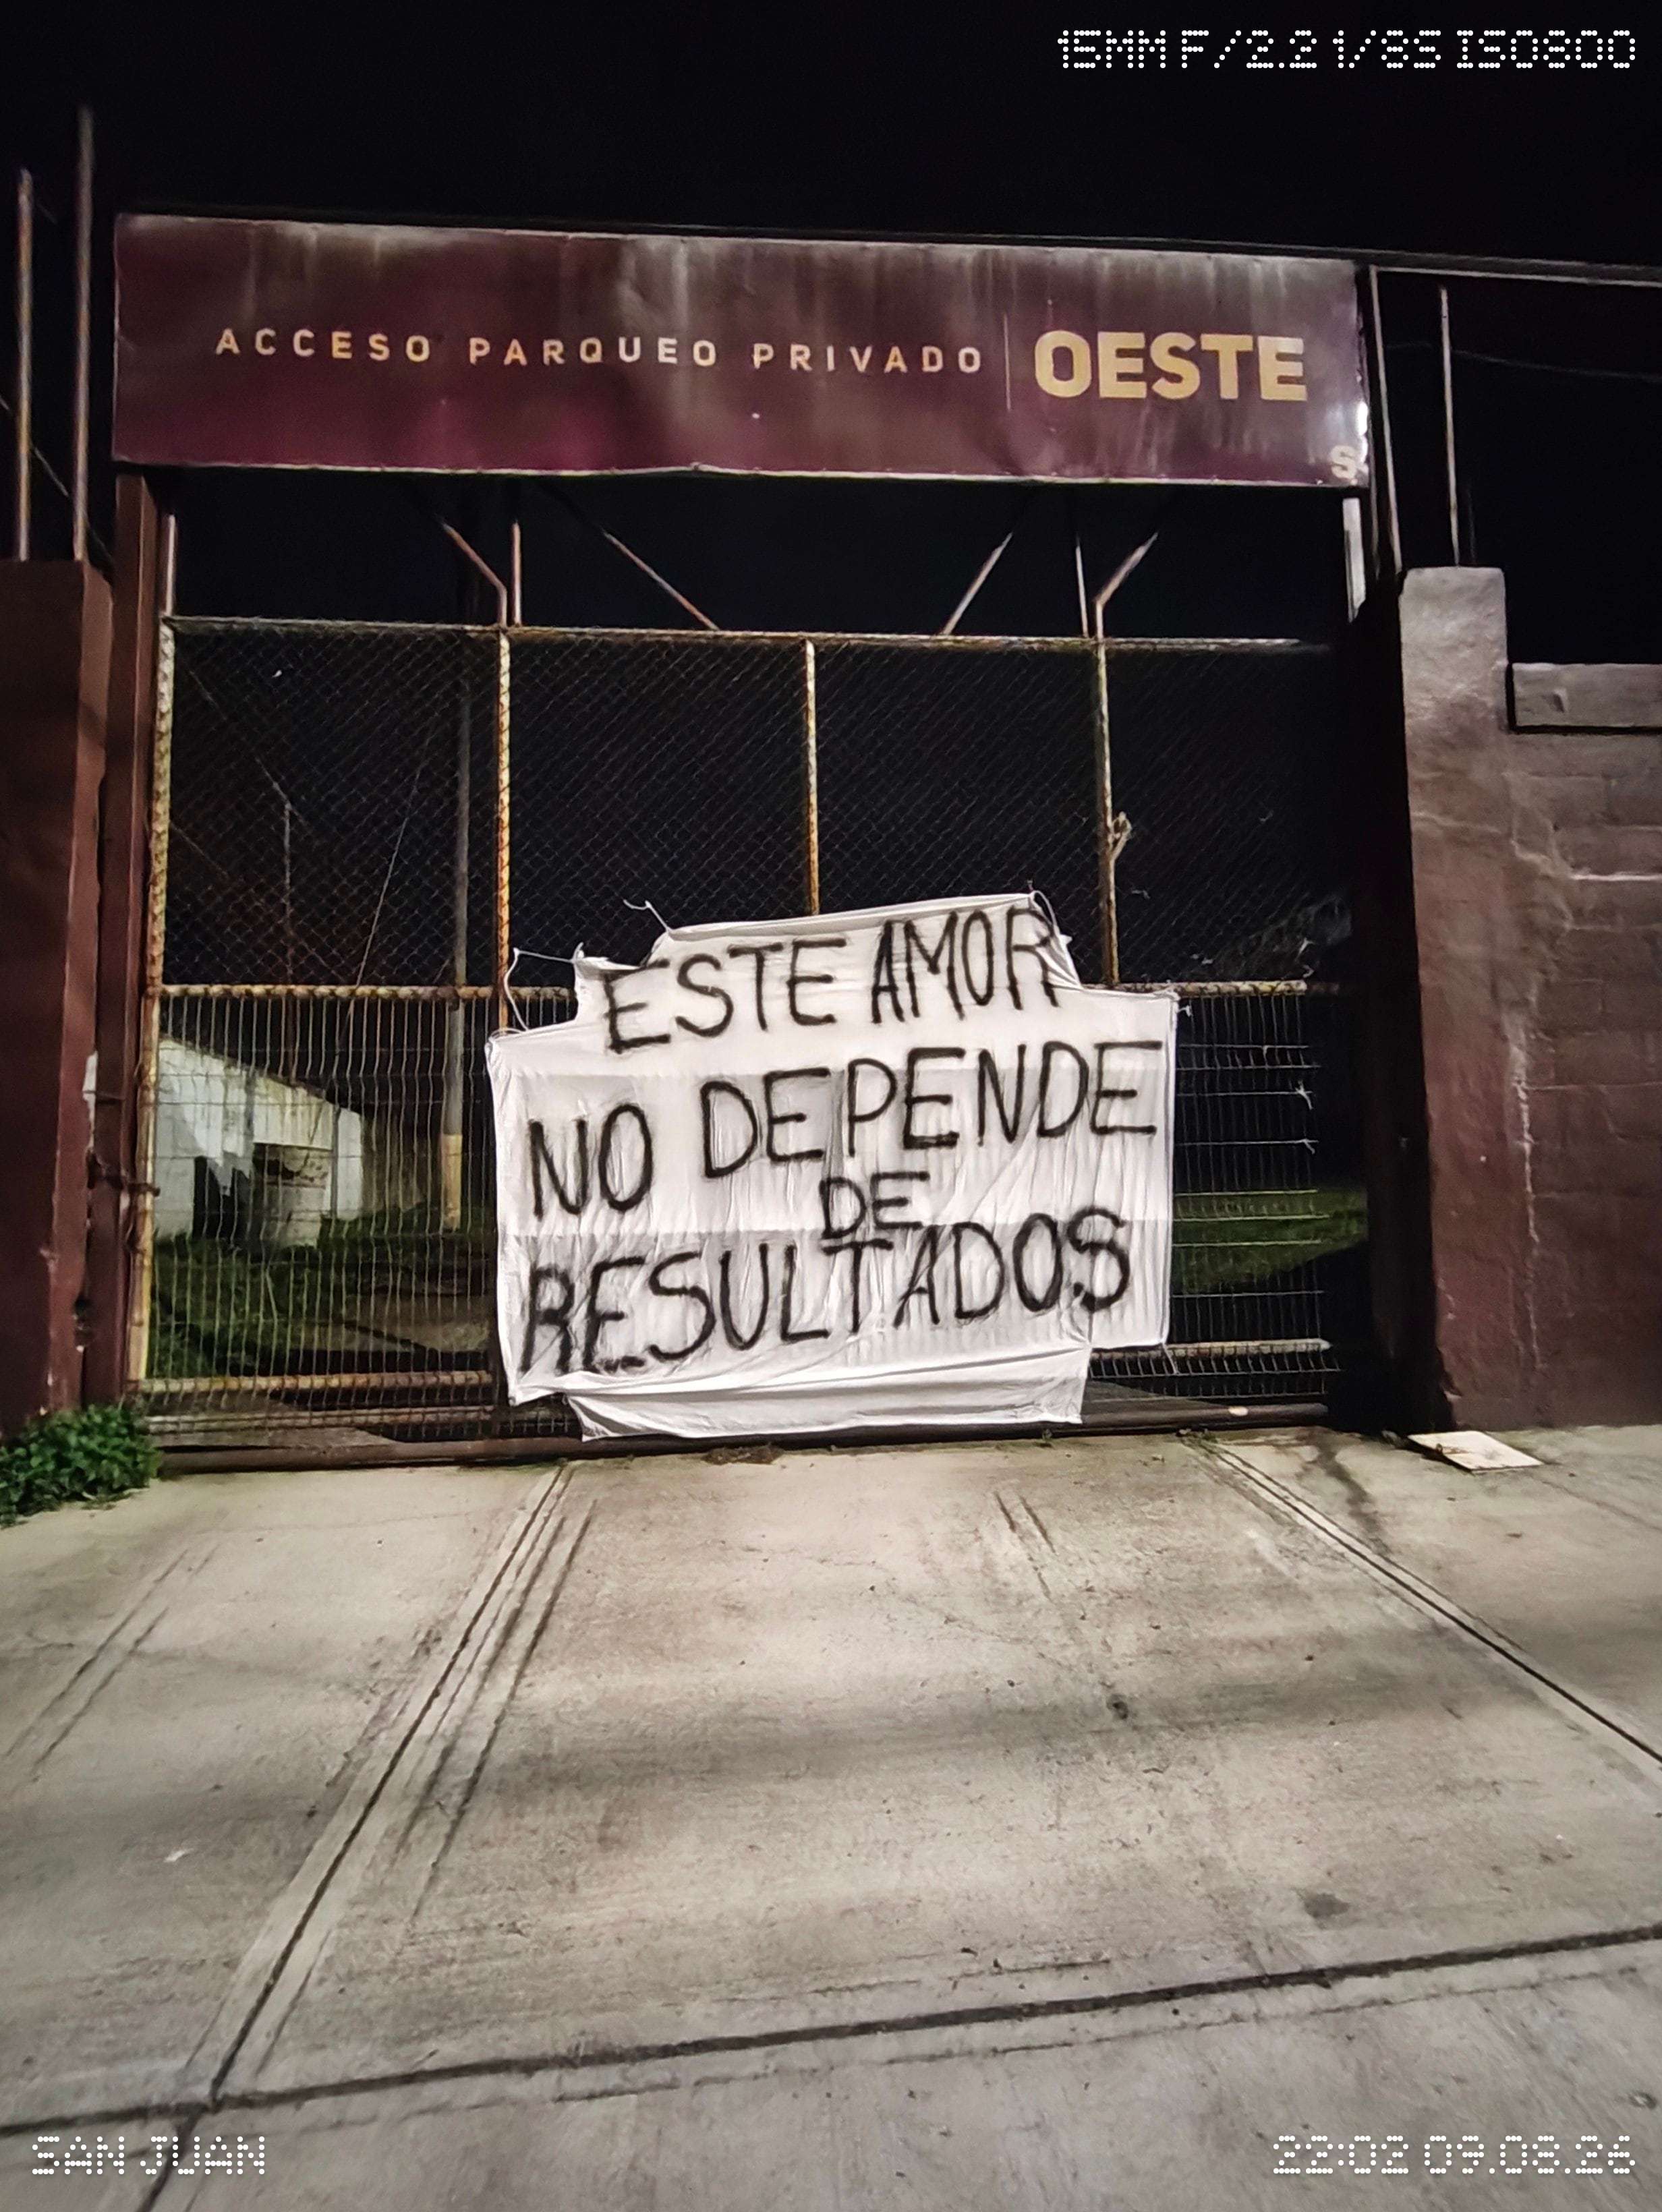 15MM F/2.2 1/8S ISO800
ACCESO PARQUEO PRIVADO OESTE
S
ESTE AMOR
NO DEPENDE
DE
RESULTADOS
SAN JUAN
22:02 09.08.26